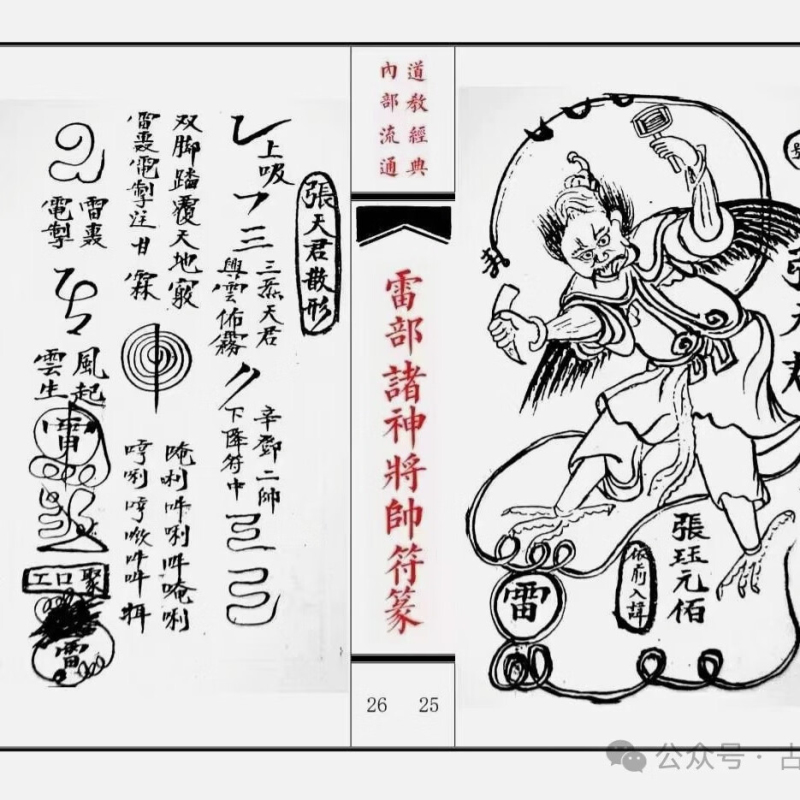 張天君
張珏元佰
依前入諱
雷
道教經典
內部流通
雷部諸神將帥符篆
26 25
張天君散形
上吸
三炁天君
興雲佈霧
辛鄧二帥
下降符中
双脚踏覆天地竅
雷轟電掣注甘霖
唵唎吽唎吽唵唎
雷轟
電掣
風起
雲生
雷
工口聚
雷
公众号 · 古